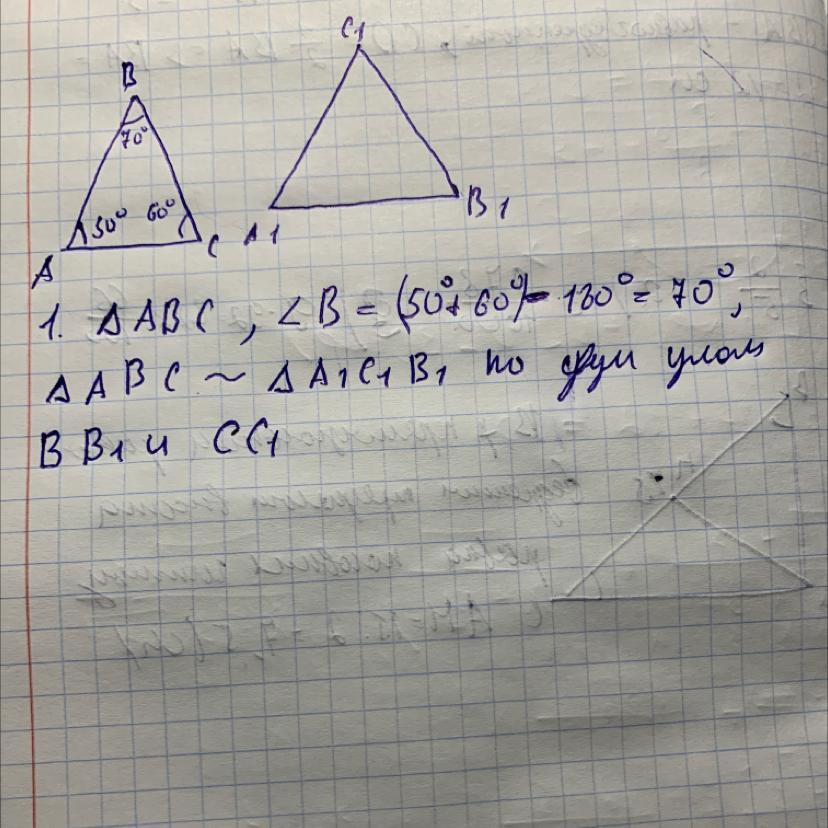 C1
B
70°
50° 60°
A C A1 B1
1. ΔABC, ∠B = (50°+60°)-180° = 70°,
ΔABC ~ ΔA1C1B1 по двум углам
BB1 и CC1